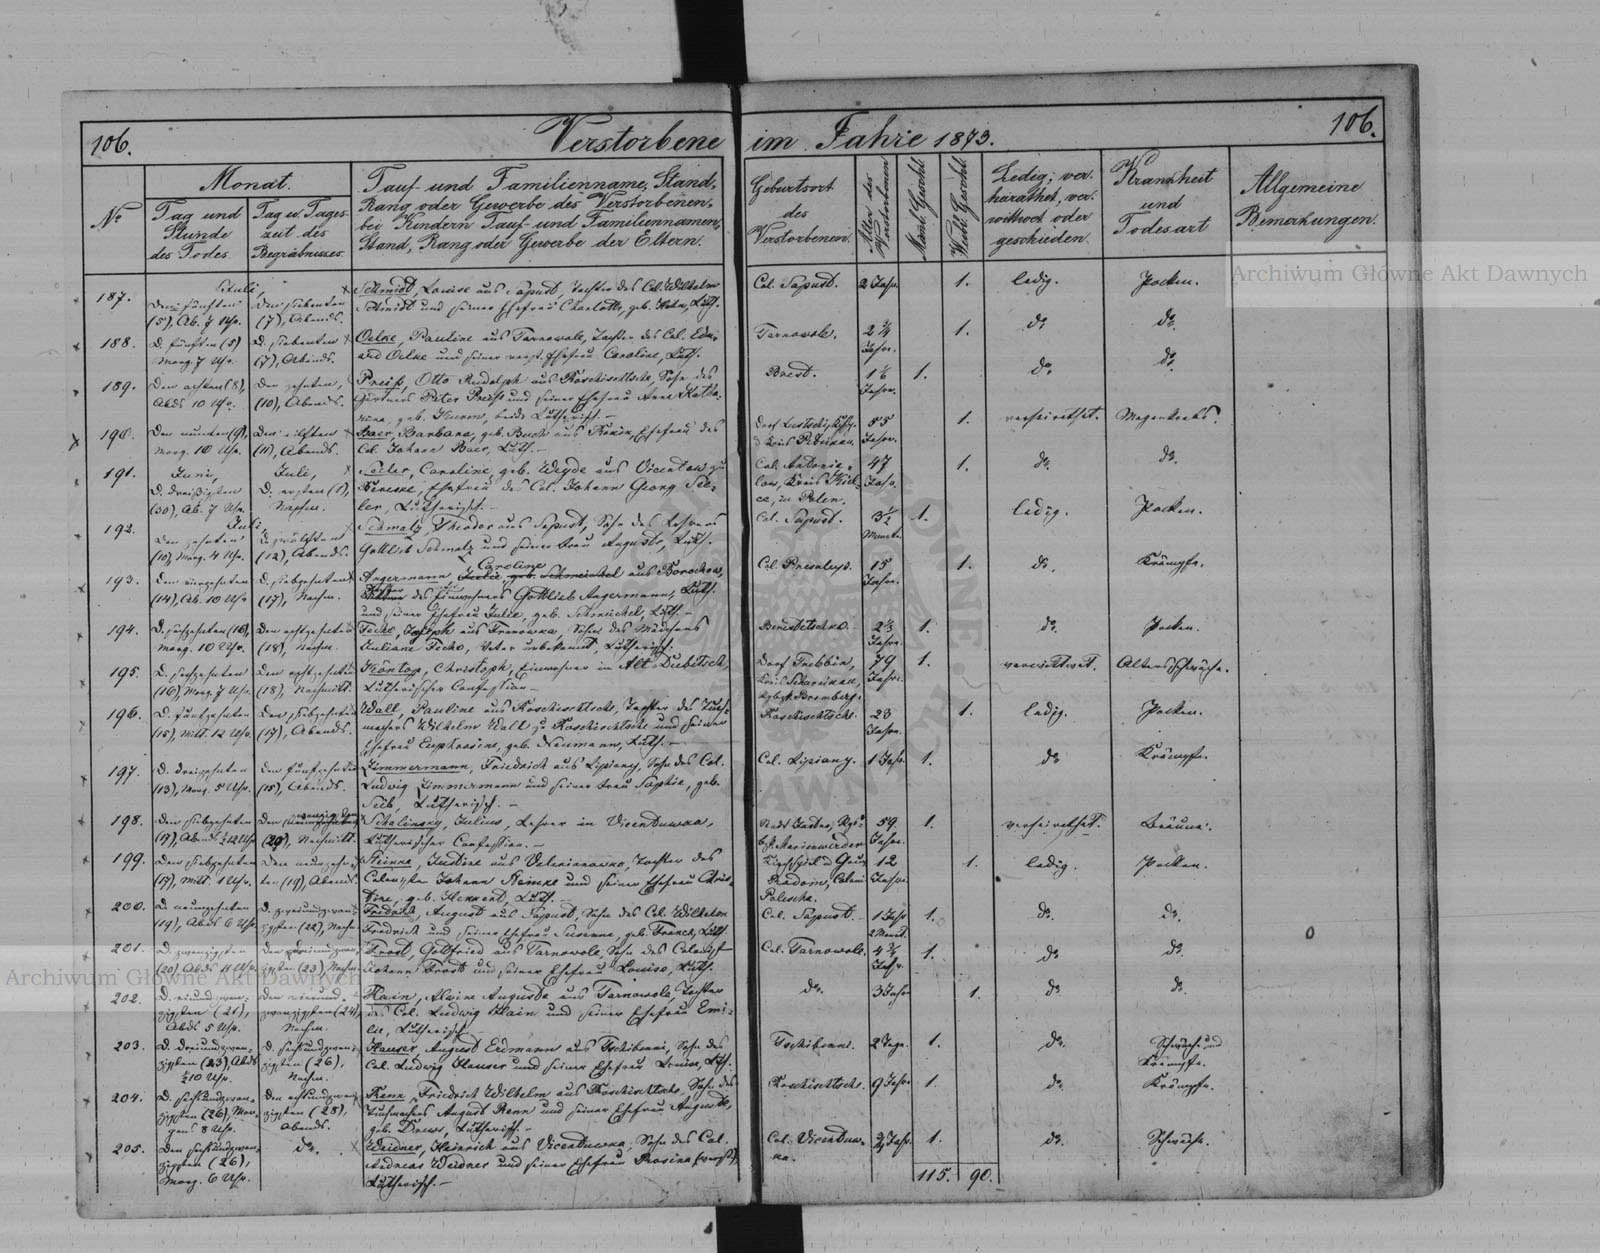 106.
Verstorbene im Jahre 1873.
106.
No
Monat.
Tag und Stunde des Todes.
Tag u. Tageszeit des Begräbnisses.
Tauf- und Familienname, Stand,
Rang oder Gewerbe des Verstorbenen,
bei Kindern Tauf- und Familiennamen,
Stand, Rang oder Gewerbe der Eltern.
Geburtsort
des
Verstorbenen.
Alter des Verstorbenen
Männl. Geschl.
Weibl. Geschl.
Ledig, ver-
heirathet, ver-
wittwet oder
geschieden.
Krankheit
und
Todesart
Allgemeine
Bemerkungen.
187.
Juli,
Den fünften
(5), Ab. 7 Uhr.
Den siebenten
(7), Abends.
Schmidt, Louise aus Sapust, Tochter des Col. Wilhelm
Schmidt und seiner Ehefrau Charlotte, geb. Luth.
Col. Sapust.
2 Jahr.
1.
ledig.
Pocken.
188.
D. fünften (5)
Morg. 7 Uhr.
D. siebenten
(7), Abends.
Oelke, Pauline aus Tarnowole, Tochter des Col. Edu-
ard Oelke und seiner Ehefrau Caroline, Luth.
Tarnowole.
2 3/4
Jahr.
1.
do
do
189.
Den achten (8),
Abds 10 Uhr.
Den zehnten,
(10), Abends.
Preiß, Otto Rudolph aus Koschischtsche, Sohn des
Gärtners Peter Preiß und seiner Ehefrau Anna Katha-
rina, geb. beide Lutherisch.
Brest.
Jahren.
1.
do
do
190.
Den neunten (9),
Morg. 10 Uhr.
Den eilften
(11), Abends.
Baer, Barbara, geb. aus Ehefrau des
Col. Johann Baer, Luth.
55
Jahr.
1.
verheirathet.
Magenkrebs.
191.
Juni,
D. dreißigsten
(30), Ab. 7 Uhr.
Juli,
D. ersten (1),
Nachm.
Seiler, Caroline, geb. Weyde aus Vicentow zu
Ehefrau des Col. Johann Georg Sei-
ler, Lutherisch.
Col. Antonie-
low, Kreis Kiel-
ce, in Polen.
47
Jahr.
1.
do
do
192.
Juli,
Den zehnten
(10), Morg. 4 Uhr.
D. zwölften
(12), Abends.
Schmalz, Theodor aus Sapust, Sohn des Lehrers
Gottlieb Schmalz und seiner Frau Auguste, Luth.
Col. Sapust.
3 1/2
Monate
1.
ledig.
Pocken.
193.
Den vierzehnten
(14), Ab. 10 Uhr
D. siebzehnten
(17), Nachm.
Caroline
Angermann, Julie, geb. Schmeichel aus Borochow,
des Einwohners Gottlieb Angermann, Luth.
und seiner Ehefrau Julie, geb. Schmeichel, Luth.
15
Jahren.
1.
do
Krämpfe.
194.
D. sechzehnten (16),
Morg. 10 Uhr.
Den achtzehnten
(18), Nachm.
Joseph aus Franowka, Sohn des Mädchens
Juliane Vater unbekannt, Lutherisch.
2 1/2
Jahren.
1.
do
Pocken.
195.
D. sechzehnten
(16), Morg. 7 Uhr.
Den achtzehnten
(18), Nachmitt.
Köntop, Christoph, Einwohner in Alt-Dubischtsche,
Lutherischer Confession.
Dorf Trebbin,
Kreis Scharnikau,
Rgbzk Bromberg.
79
Jahren.
1.
verwittwet.
Altersschwäche.
196.
D. fünfzehnten
(15), Mitt. 12 Uhr.
Den siebzehnten
(17), Abends.
Wall, Pauline aus Koschischtsche, Tochter des Tuch-
machers Wilhelm Wall zu Koschischtsche und seiner
Ehefrau Euphrosine, geb. Neumann, Luth.
Koschischtsche.
23
Jahren.
1.
ledig.
Pocken.
197.
D. dreizehnten
(13), Morg. 5 Uhr.
Den fünfzehnten
(15), Abends.
Zimmermann, Friedrich aus Lipiany, Sohn des Col.
Ludwig Zimmermann und seiner Frau Sophie, geb.
Lutherisch.
Col. Lipiany.
1 Jahr.
1.
do
Krämpfe.
198.
Den siebzehnten
Abends 1/2 12 Uhr
Nachmitt.
Schalinsky, Julius, Lehrer in Vicentuwka,
Lutherischer Confession.
Stadt Jastrow,
Marienwerder
59.
Jahren.
1.
verheirathet.
Bräune.
199.
Den siebzehnten
(17), Mitt. 1 Uhr.
Den neunzehn-
ten (19), Abends.
Steinke, Justine aus Valerianowka, Tochter des
Colonisten Johann Steinke und seiner Ehefrau Chris-
tine, geb. Luth.
Kirchspiel u Gouv
Radom, Colonie
12
Jahren.
1.
ledig.
Pocken.
200.
D. neunzehnten
(19), Ab. 6 Uhr.
D. zweiundzwan-
zigsten (22), Nachm
Friedrich, August aus Sapust, Sohn des Col. Wilhelm
Friedrich und seiner Ehefrau Susanne, geb. Franck, Luth.
Col. Sapust.
1 Jahr
2 Monat.
1.
do.
do.
201.
D. zwanzigsten
(20), Abds 11 Uhr.
Den dreiundzwan-
zigsten (23), Nachm.
Frost, Gottfried aus Tarnowole, Sohn des Colonist
Johann Frost und seiner Ehefrau Louise, Luth.
Col. Tarnowole.
Jahr.
1.
do
do.
202.
D. einundzwan-
zigsten (21),
Abds 5 Uhr.
Den vierund-
zwanzigsten (24),
Nachm.
Hain, Alwine Auguste aus Tarnowole, Tochter
des Col. Ludwig Hain und seiner Ehefrau Emi-
lie, Lutherisch.
do.
3 Jahr
1.
do
do.
203.
D. dreiundzwan-
zigsten (23), Abds
1/2 10 Uhr.
D. sechsundzwan-
zigsten (26),
Nachm.
Hauser, August Erdmann aus Tschibenni, Sohn des
Col. Ludwig Hauser und seiner Ehefrau Louise, Lth.
Tschibenni.
2 Tage.
1.
do.
Schwäche und
Krämpfe.
204.
D. sechsundzwan-
zigsten (26), Mor-
gens 8 Uhr.
Den achtundzwan-
zigsten (28),
Abends.
Renn, Friedrich Wilhelm aus Koschischtsche, Sohn des
Tuchmachers August Renn und seiner Ehefrau Auguste,
geb. Drews, Lutherisch.
Koschischtsche.
9 Jahr.
1.
do
Krämpfe.
205.
Den sechsundzwan-
zigsten (26),
Morg. 6 Uhr.
do.
Weidner, Heinrich aus Vicentuwka, Sohn des Col.
Andreas Weidner und seiner Ehefrau Rosina
Lutherisch.
Col. Vicentuw-
ka.
3/4 Jahr.
1.
do.
Schwäche.
115. 90.
Archiwum Główne Akt Dawnych
Archiwum Główne Akt Dawnych